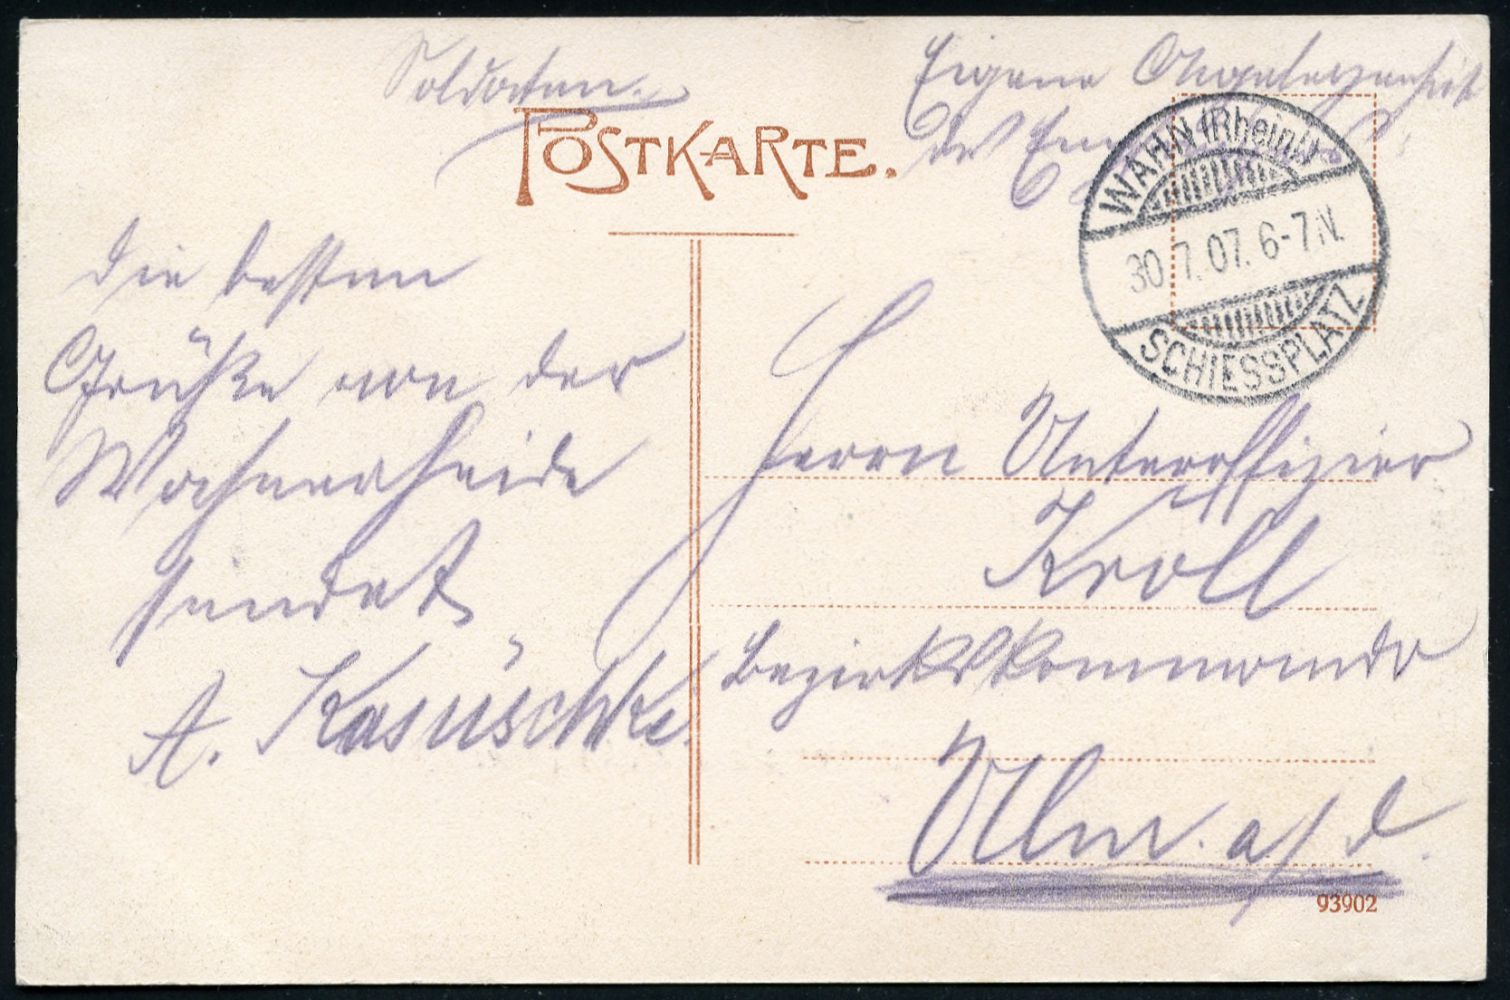 Soldaten.
Eigene Angelegenheit
des
POSTKARTE.
WAHN (Rheinl.)
30.7.07. 6-7N.
SCHIESSPLATZ
die besten
Grüße von der
Wahnerheide
sendet
A. Kasüschke.
Herrn Unteroffizier
Kroll
Bezirkskommando
Ulm. a/d.
93902